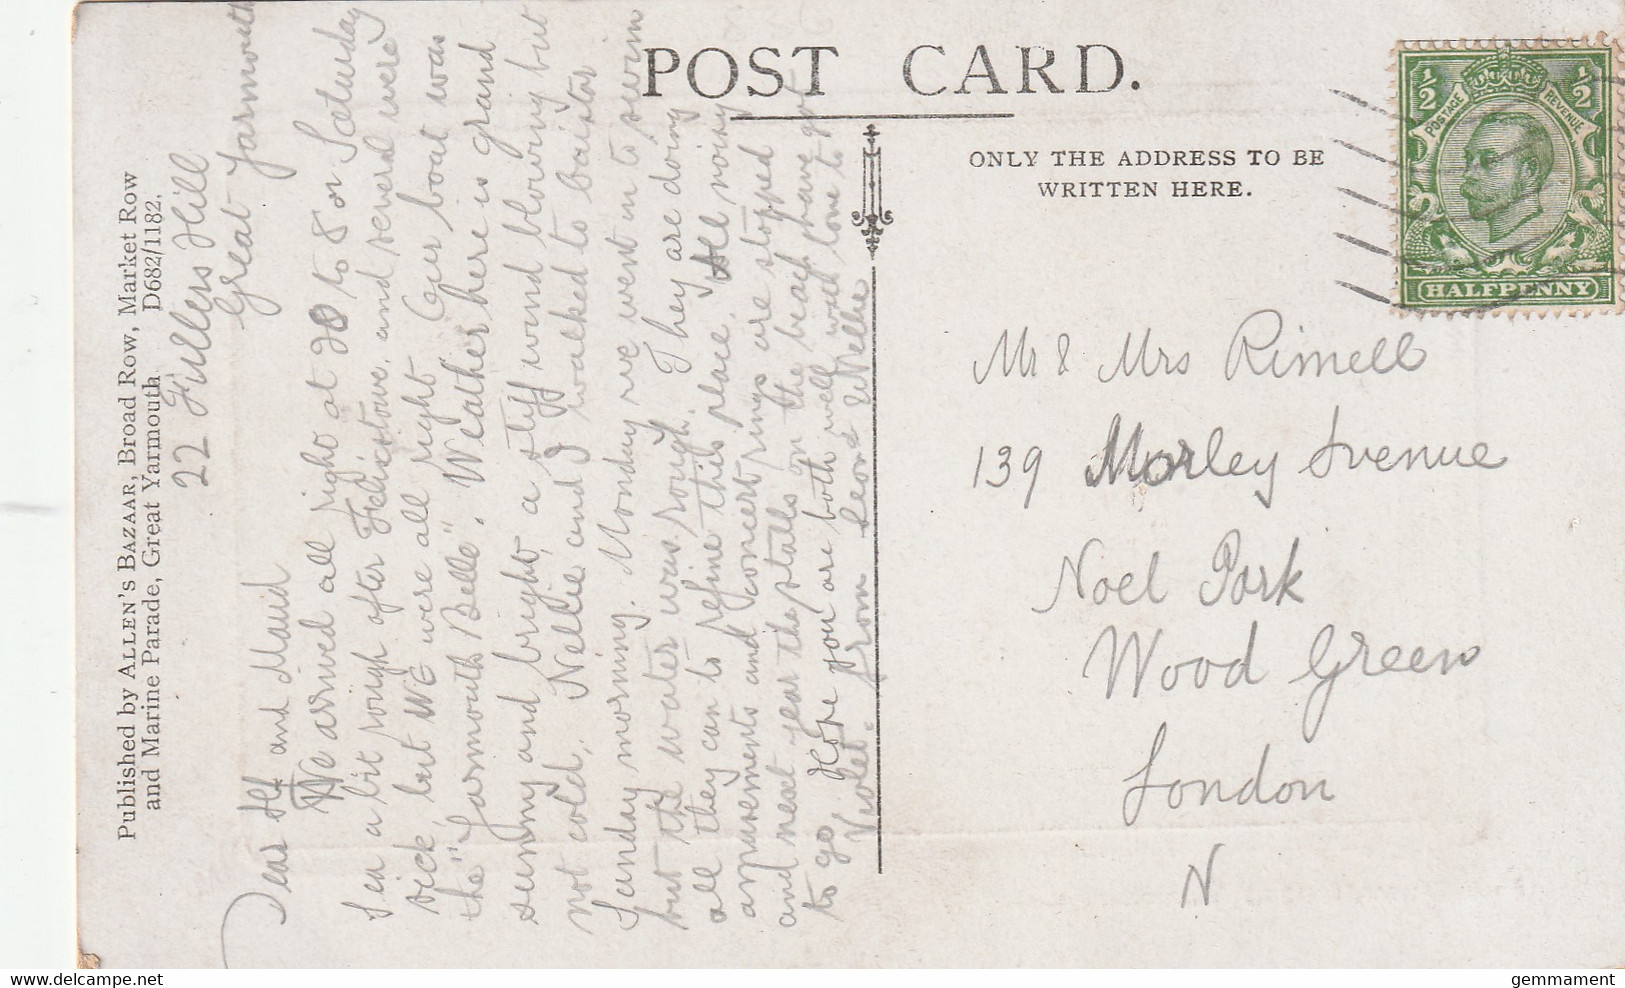 POST CARD.
ONLY THE ADDRESS TO BE
WRITTEN HERE.
POSTAGE REVENUE
½ ½
HALFPENNY
Published by ALLEN'S BAZAAR, Broad Row, Market Row
and Marine Parade, Great Yarmouth D682/1182.
22 Fullers Hill
Great Yarmouth
Dear Alf and Maud
We arrived all right at 20 to 8 on Saturday
Sea a bit rough after Felixstowe, and several were
sick, but WE were all right Our boat was
the "Yarmouth Belle". Weather here is grand
sunny and bright, a stiff wind blowing but
not cold, Nellie and I walked to Caister
Sunday morning. Monday we went in to swim
but the water was rough. They are doing
all they can to refine this place. All noisy
amusements and concert rings are stopped
and next year the stalls on the beach have got
to go. Hope you are both well with love to
Violet. from Leon & Nellie
Mr & Mrs Rimell
139 Morley Avenue
Noel Park
Wood Green
London
N
delcampe.net
gemmament